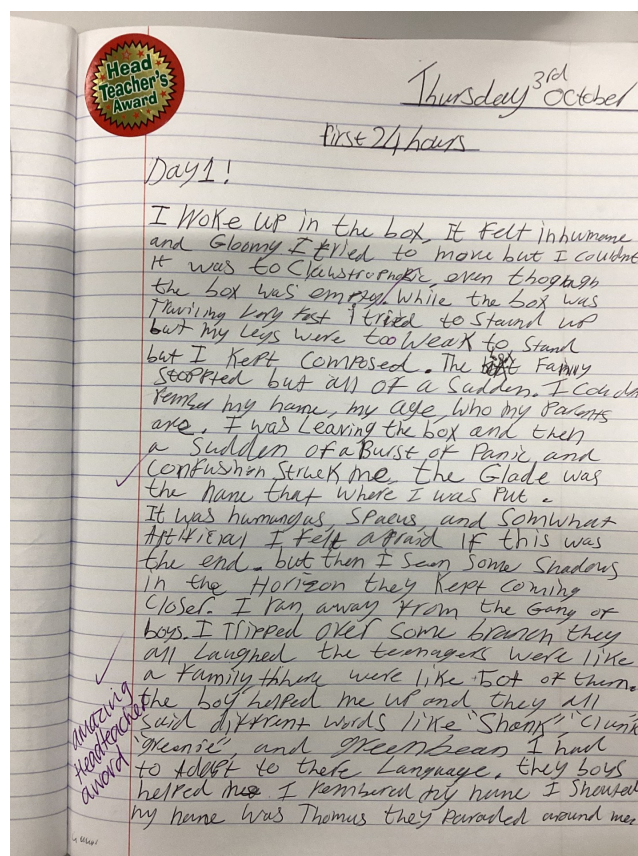 Head
Teacher's
Award
Thursday 3rd October
first 24 hours
Day 1!
I Woke up in the box, It felt inhumane
and Gloomy I tried to move but I couldnt
It was to Claustrophobic, even thogh
the box was empty. While the box was
Traviling very fast i tried to Stand up
but my legs were too weak to Stand
but I kept composed. The Family
Stoppted but all of a Sudden. I Could
rember my name, my age, who my parents
are. I was Leaving the box and then
a Sudden of a Burst of Panic, and
confushion Struck me, the Glade was
the name that where I was put.
It was humungas, Spacus, and Somwhat
Artificial I felt afraid If this was
the end. but then I Seen Some Shadows
in the Horizon they Kept coming
Closer. I ran away from the Gang of
boys. I Tripped over Some branch they
all Laughed the teenagers were like
a family there were like 50t of them.
the boy helped me up and they all
Said different words like "Shank", "Clunk"
"greenie" and greenbean I had
to Adapt to there Language. they boys
helped me I rembered my name I Shouted
my name was Thomus they paraded around me
amazing
Headteacher
award